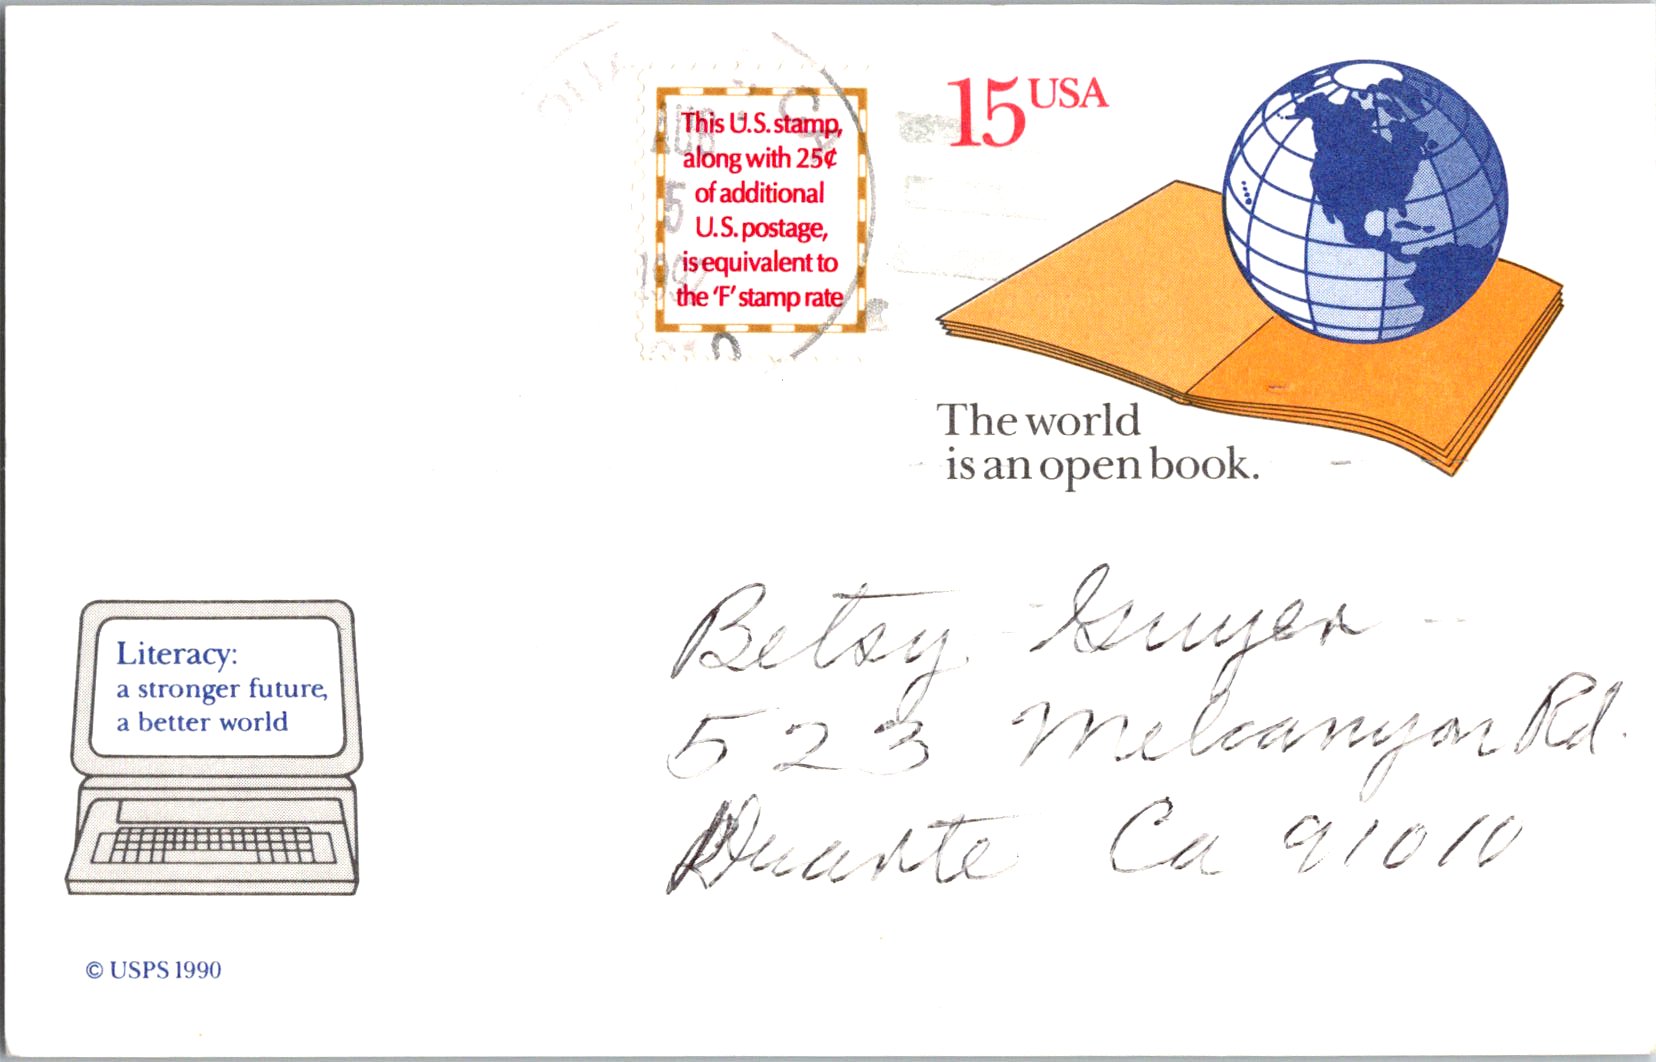 AUG
5
This U.S. stamp,
along with 25¢
of additional
U.S. postage,
is equivalent to
the 'F' stamp rate
15 USA
The world
is an open book.
Literacy:
a stronger future,
a better world
Betsy Guyer
523 Melcanyon Rd.
Duarte Ca 91010
© USPS 1990